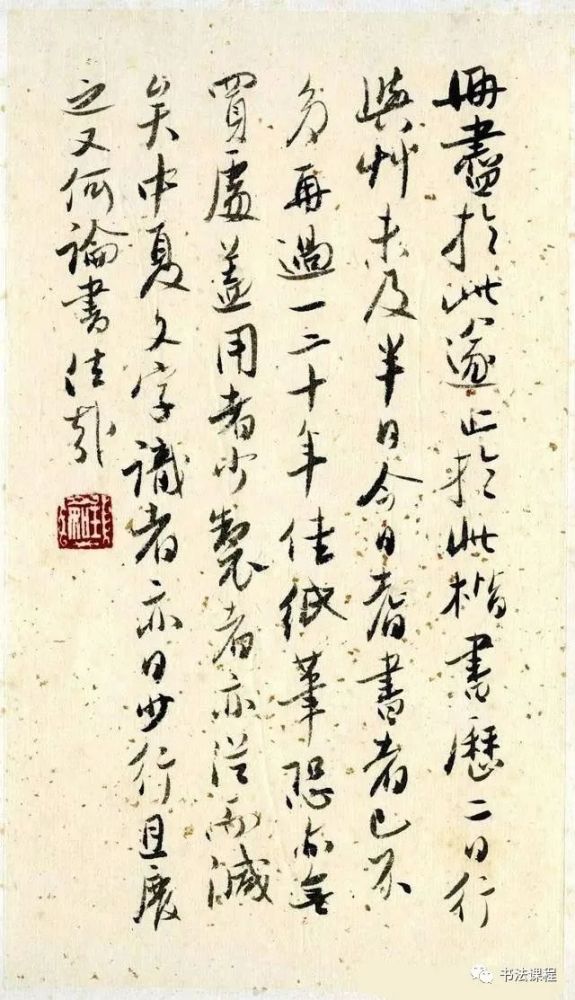 冊盡於此遂止於此楷書歷二日行
與艸未及半日今日耆書者已不
多再過一二十年佳紙筆恐亦無
買處蓋用者少製者亦從而減
矣中夏文字識者亦日少行且廢
之又何論書法哉
书法课程